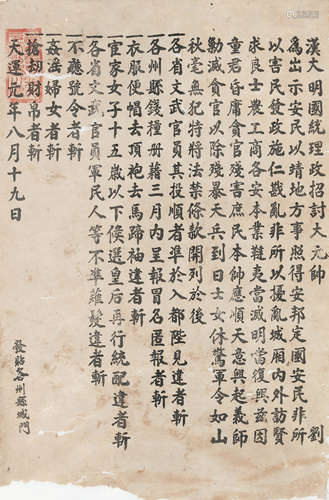 漢大明國統理政招討大元帥　劉
為出示安民以靖地方事照得安邦定國安民非所
以害民發政施仁戡亂非所以擾亂城厢內外訪賢
求良士農工商各安本業韃夷當滅明當復興茲因
童君昏庸貪官殘害庶民本帥應順天意興起義師
勦滅貪官以除殘暴天兵到日士女休驚軍令如山
秋毫無犯特將法禁條款開列於後
一各省文武官員其投順者準於入都陛見違者斬
一各州縣錢種册籍三月內呈報冒名匿報者斬
一衣服便帽去頂袍去馬蹄袖違者斬
一官家女子十五歲以下候選皇后再行統配違者斬
一各省文武官員軍民人等不準薙髮違者斬
一不聽號令者斬
一姦淫婦女者斬
一搶刼財帛者斬
天運元年八月十九日
發貼各州縣城門